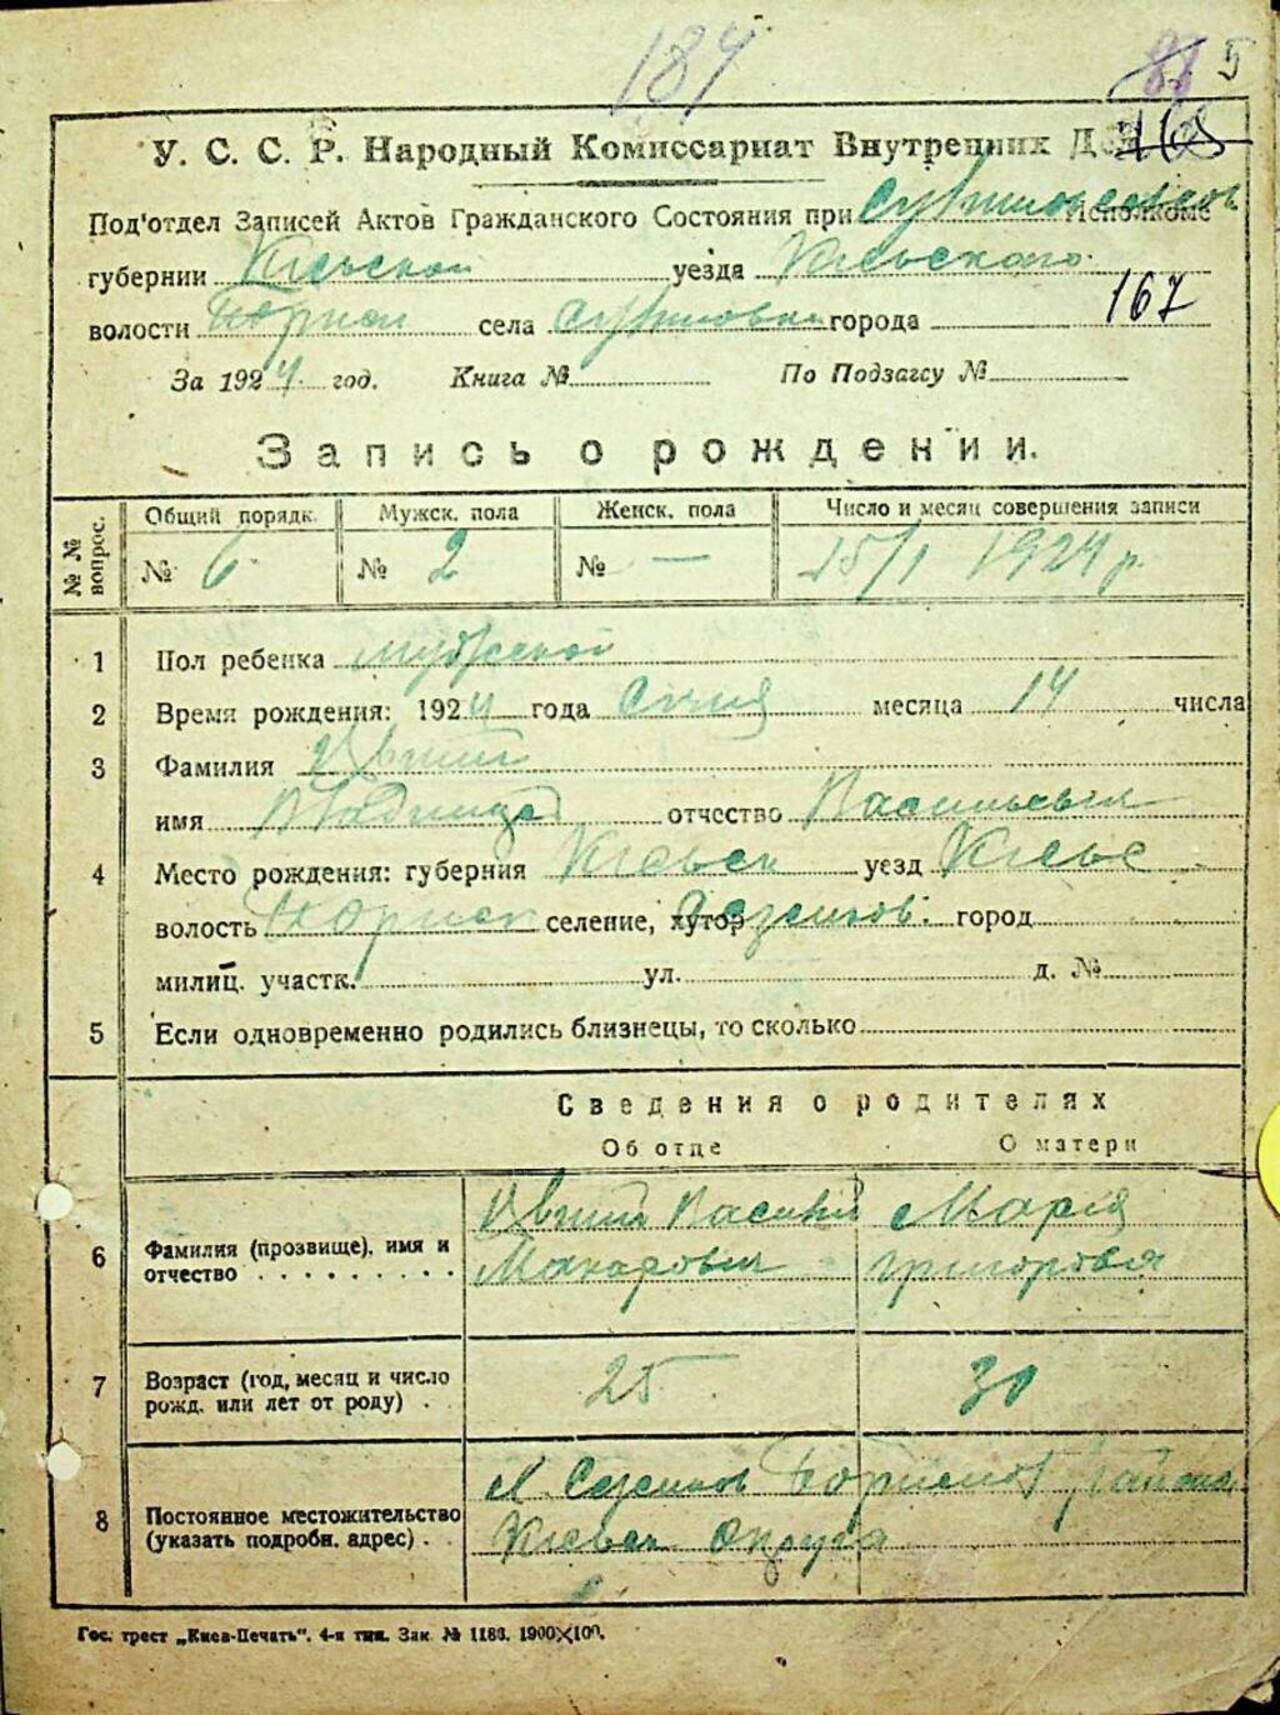 184
5
У. С. С. Р. Народный Комиссариат Внутренних Дел
168
Под'отдел Записей Актов Гражданского Состояния при Исполкоме
губернии Киевской уезда Киевского
волости села города
167
За 1924 год. Книга № По Подзагсу №
Запись о рождении.
№ № вопрос. Общий порядк. Мужск. пола Женск. пола Число и месяц совершения записи
№ 6 № 2 № — 15/I 1924 р.
1 Пол ребенка мужской
2 Время рождения: 1924 года Січня месяца 14 числа
3 Фамилия
имя отчество Васильевич
4 Место рождения: губерния Киевск уезд Киевс
волость селение, хутор город
милиц. участк. ул. д. №
5 Если одновременно родились близнецы, то сколько
Сведения о родителях
Об отце О матери
6 Фамилия (прозвище), имя и отчество Макарович Марія
7 Возраст (год, месяц и число рожд. или лет от роду) 25 30
8 Постоянное местожительство (указать подробн. адрес) района
Киевск Округа
Гос. трест „Киев-Печать“. 4-я тип. Зак. № 1183. 1900×100.